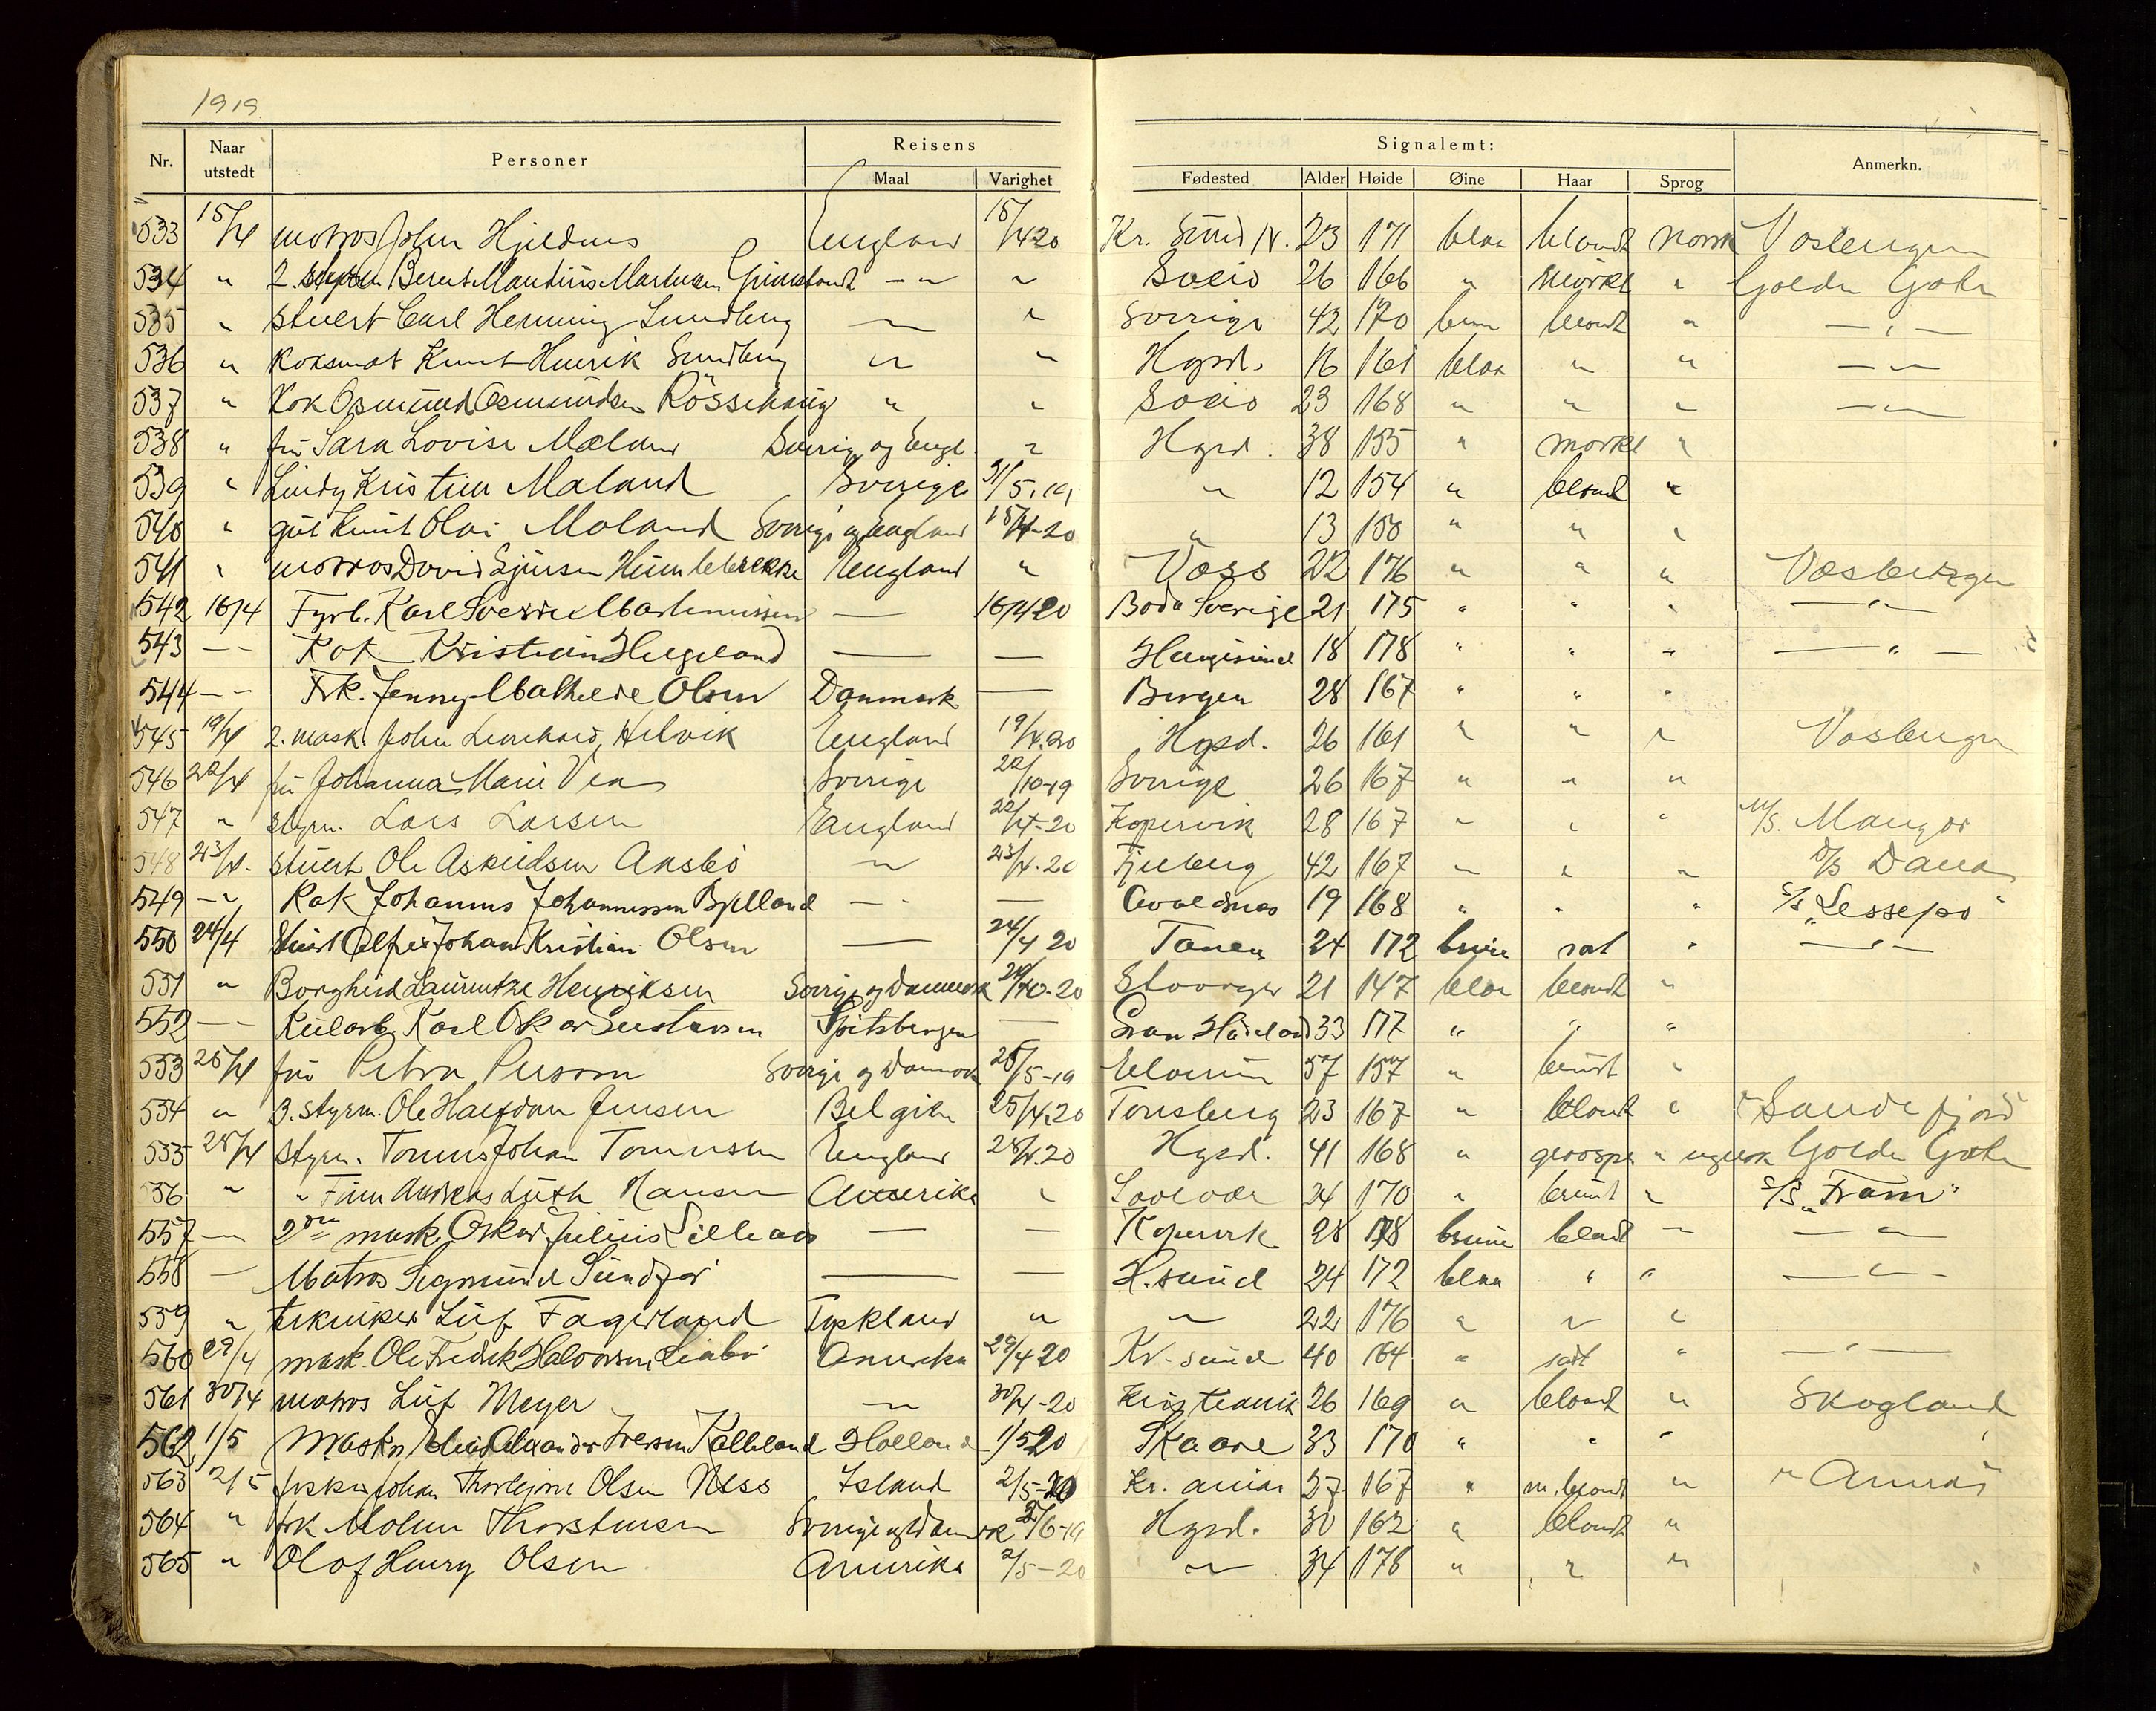 1919.
Nr. Naar utstedt Personer Reisens Maal Varighet Signalemt: Fødested Alder Høide Øine Haar Sprog Anmerkn.
533 15/4 matros John Hjeldnes England 15/4 20 Kr. Sund N. 23 171 blaa blondt norsk Vosbergen
534 " 2. Berent Mauritius Martinsen Grindland — " — " 26 166 " mørkt " Golden Gate
535 " stuert Carl Henning Sundberg — " Sverige 42 170 blondt " — " —
536 " Koksmat Knut Henrik Sundberg " " Hgsd. 16 161 blaa " " — " —
537 " Kok Osmund Osmundsen Rössehaug " " 23 168 " " " — " —
538 " fru Sara Lovise Mæland Sverig og Engl. " Hgsd. 38 155 " mørkt "
539 " Lindy Kristine Mæland Sverige 31/5.19 " 12 154 " blondt "
540 " gut Knut Olai Mæland Sverige og England 15/4-20 " 13 150 " " "
541 " matros David Sjursen Humlebrekke England " Voss 22 176 " " " Vosbergen
542 16/4 Fyrb. Karl Sverre Martinussen — 16/4 20 Boda Sverige 21 175 " " " — " —
543 — Kok Kristian Hegeland — — Haugesund 18 178 " " " — " —
544 — Frk. Jenny Mathilde Olsen Danmark — Bergen 28 167 " " "
545 19/4 2. mask. John Leonhard Helvik England 19/4.20 Hgsd. 26 161 " " " Vosbergen
546 22/4 fru Johanna Marie Vea Sverige 22/10-19 Sverige 26 167 " " "
547 " styrm. Lars Larsen England 22/4-20 Kopervik 28 167 " " " M/S. Mangor
548 23/4. stuert Ole Askildsen Aksbö " 23/4.20 Tjerberg 42 167 " " " D/S Dana
549 — Kok Johannes Johannessen Bjelland — — Avaldsnes 19 168 " " " S/S "Lesseps"
550 24/4 Stuert Alfred Johan Kristian Olsen — 24/4 20 Tanen 24 172 brune sort " — " —
551 " Borghild Lauritze Henriksen Sverige og Danmark 24/10-20 Stavanger 21 147 blaa blondt "
552 — Kularb. Karl Oskar Gustavsen Spitsbergen — Gran Hadeland 33 177 " " "
553 25/4 fru Petra Person Sverige og Danmark 25/5-19 Elverum 57 157 " brunt "
554 " 3. styrm. Ole Halfdan Jensen Belgien 25/4.20 Tønsberg 23 167 " blondt " Sandefjord
555 28/4 styrm. Tønnes Johan Tønnesen England 28/4.20 Hgsd. 41 168 " " engelsk Golden Gate
556 " " Finn Andreas Lüth Hansen Amerika " 24 170 " brunt " S/S "Fram"
557 — 2den mask. Oskar Julius Lillaas — — Kopervik 28 178 brune blondt " — " —
558 — Matros Sigmund Sundför — — H.sund 24 172 blaa " " — " —
559 " tekniker Leif Fagerland Tyskland " " 22 176 " " "
560 29/4 mask. Ole Fredrik Halvorsen Liabö Amerika 29/4 20 Kr. sund 40 164 " sort " — " —
561 30/4 matros Leif Meyer " 30/4-20 Kristiania 26 169 " blondt " Skogland
562 1/5 Maskn. Alexander Iversen Kalleland Holland 1/5 20 Skaare 33 170 " " "
563 2/5 fisker Johan Thorbjørn Olsen Ness Island 2/5-20 Kr. 27 167 " m. blondt "
564 " frk Thorstensen Sverige og Danmark 2/6-19 Hgsd. 30 162 " blondt "
565 " Olaf Henry Olsen Amerika 2/5-20 " 34 178 " " "